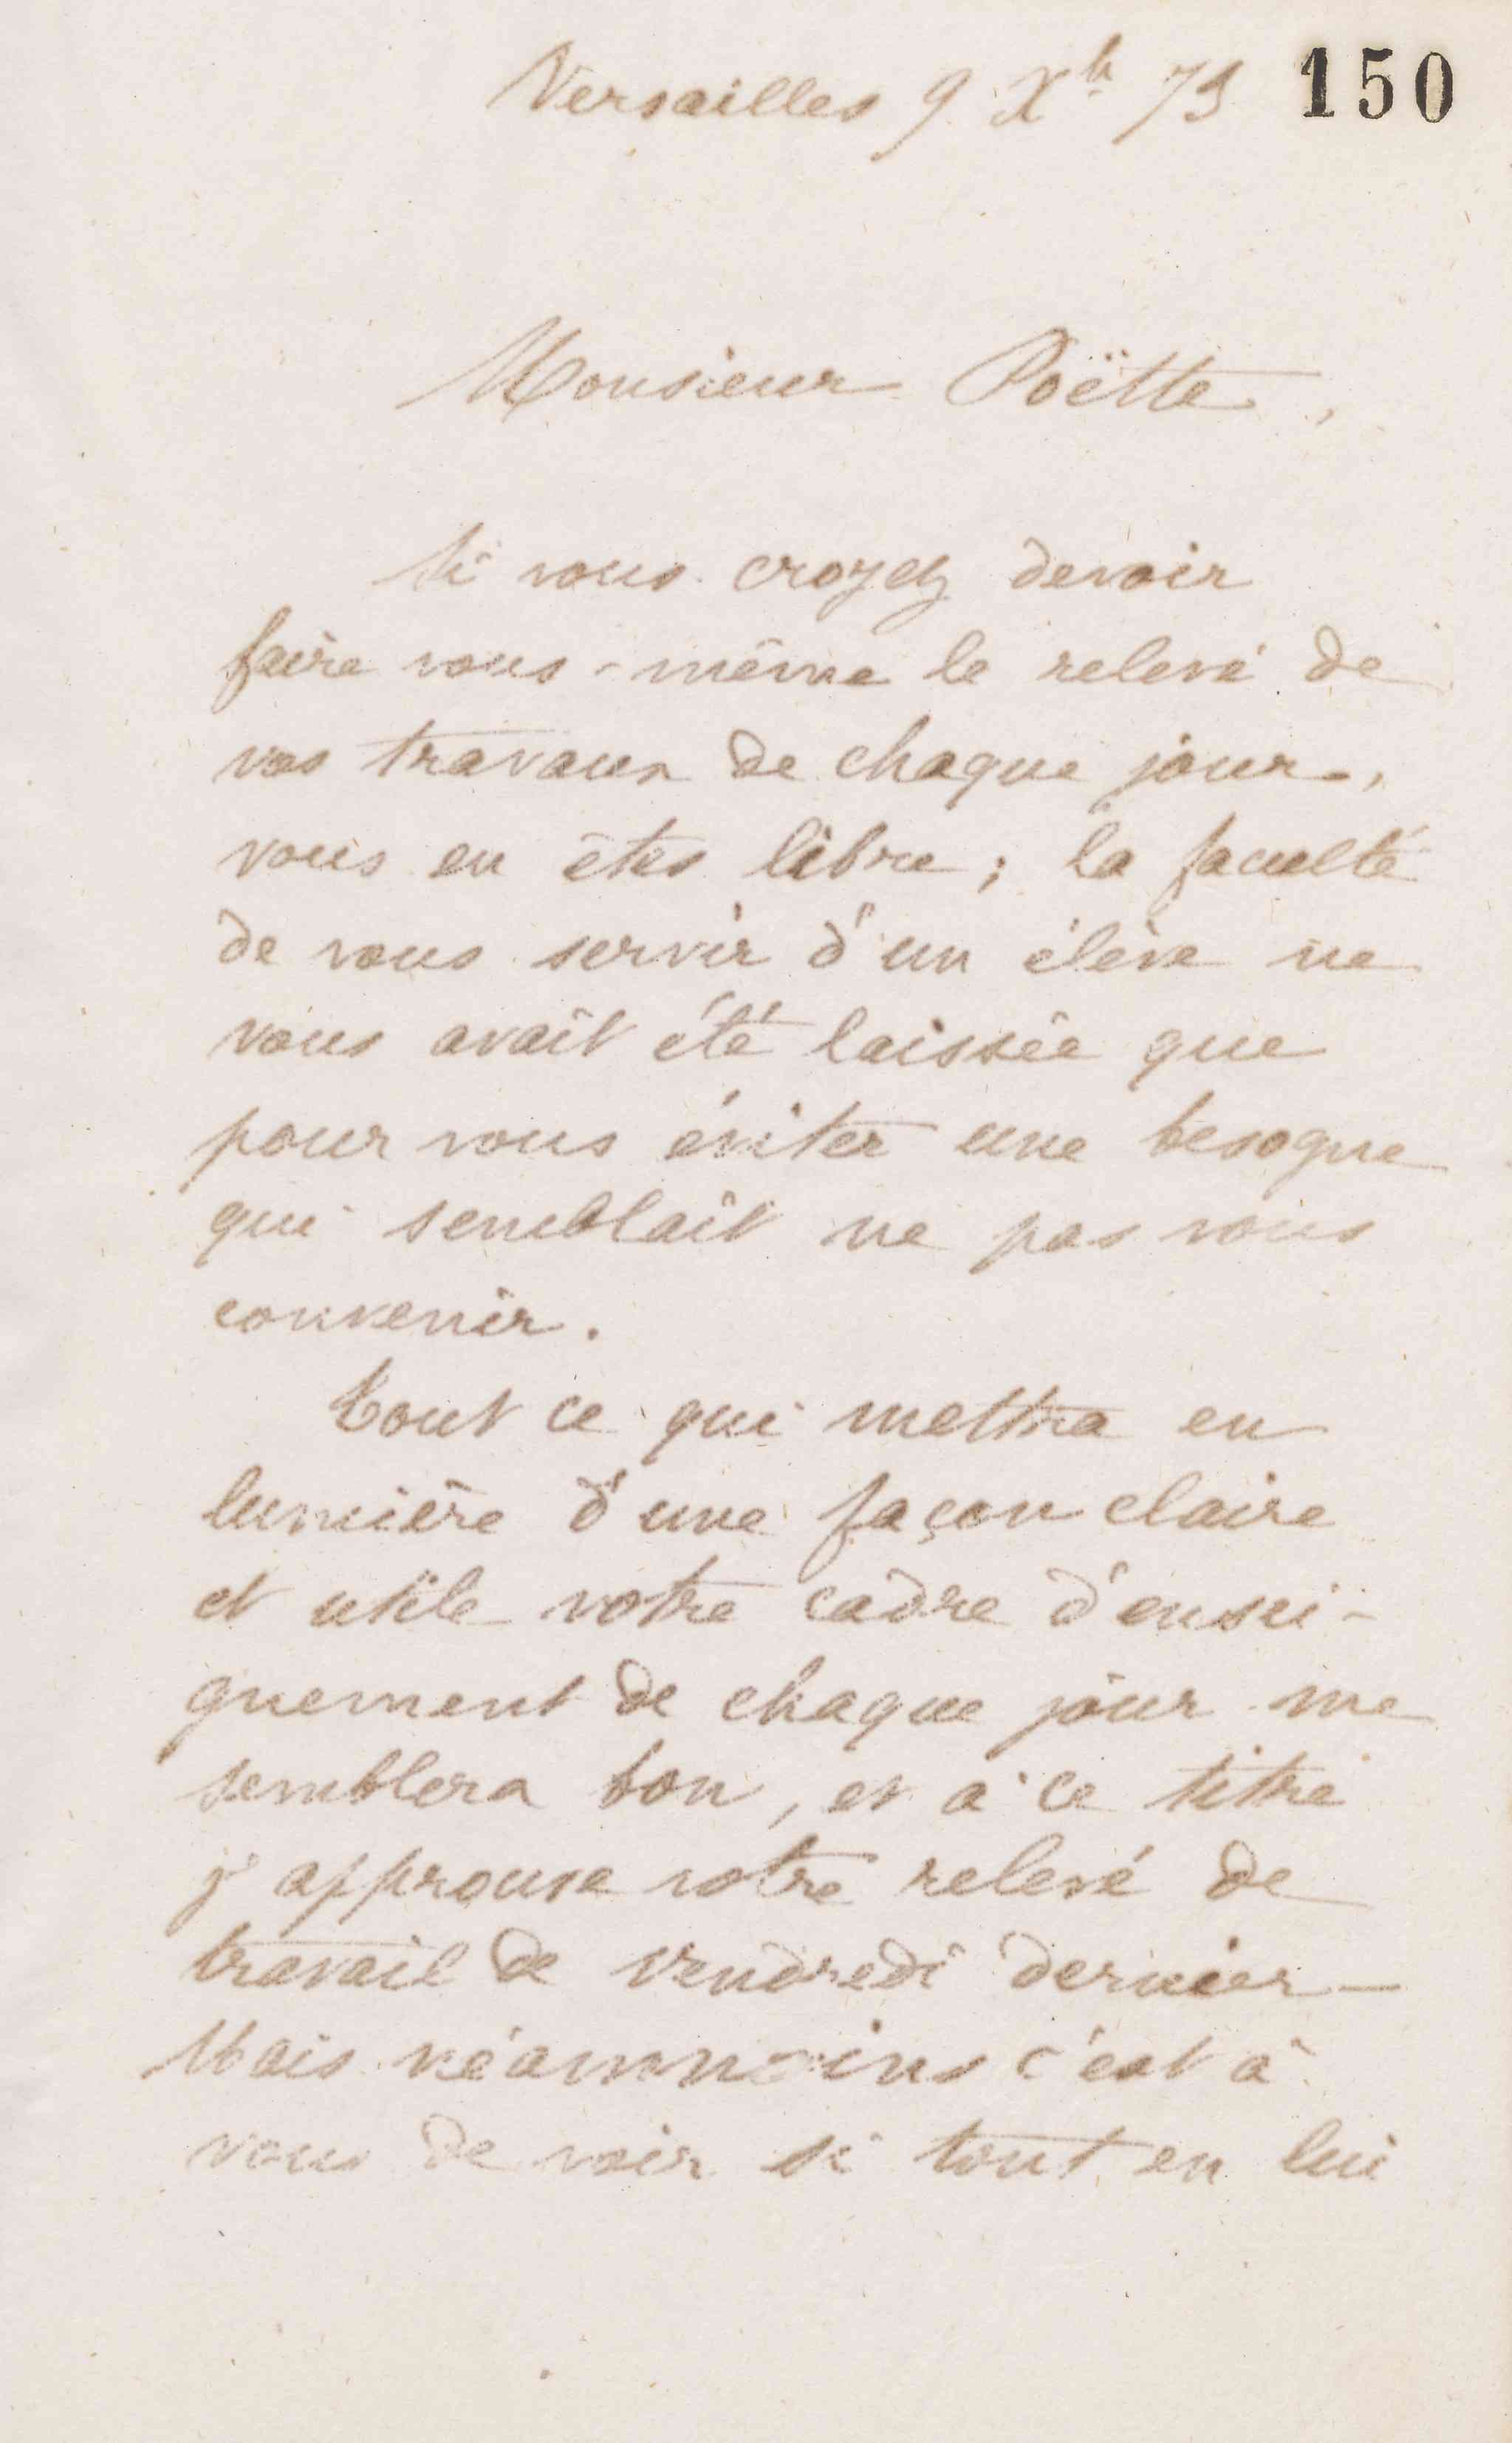 Versailles 9 Xb 73 150
Monsieur Poëtte,
Si vous croyez devoir
faire vous-même le relevé de
vos travaux de chaque jour,
vous en êtes libre ; la faculté
de vous servir d'un élève ne
vous avait été laissée que
pour vous éviter une besogne
qui semblait ne pas vous
convenir.
Tout ce qui mettra en
lumière d'une façon claire
et utile votre cadre d'ensei-
gnement de chaque jour me
semblera bon, et à ce titre
j'approuve votre relevé de
travail de vendredi dernier —
Mais néanmoins c'est à
vous de voir si tout en lui